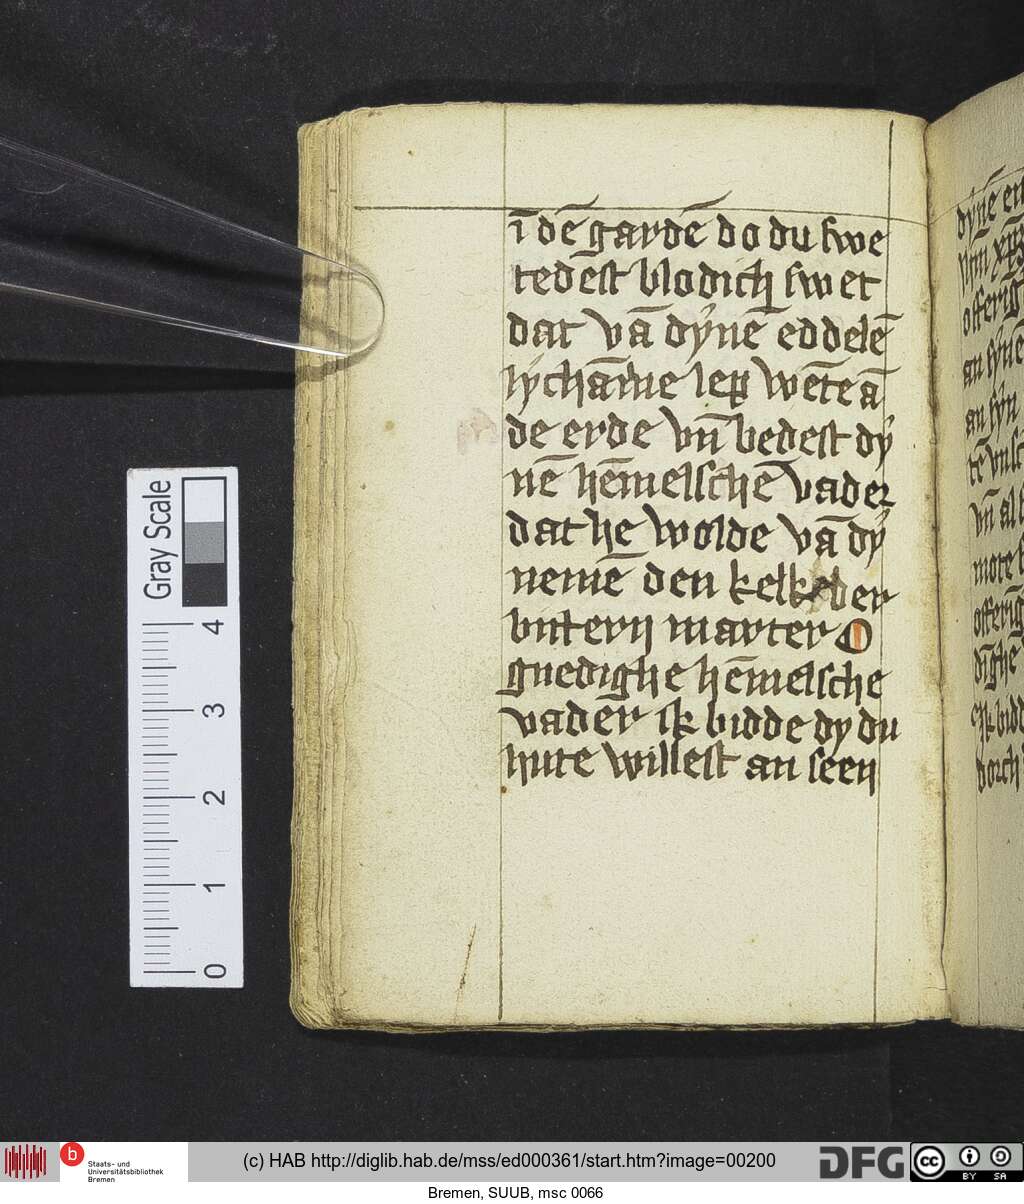 ī dē gardē do du swe
tedest blodich swet
dat vā dȳnē eddelē
lȳchāme lep wēte ā
de erde vn̄ bedest dy
nē hēmelschē vader
dat he wolde vā dy
nemē den kelk der
bittern marter O
gnedighe hēmelsche
vader ik bidde dy du
hute willest an seen
dynē
offerig
an synē
an syn
vn̄ al
offerig
dighe
Ik bidd
dorch
Gray Scale
4
3
2
1
0
b Staats- und
Universitätsbibliothek
Bremen
(c) HAB http://diglib.hab.de/mss/ed000361/start.htm?image=00200
DFG
cc BY SA
Bremen, SUUB, msc 0066